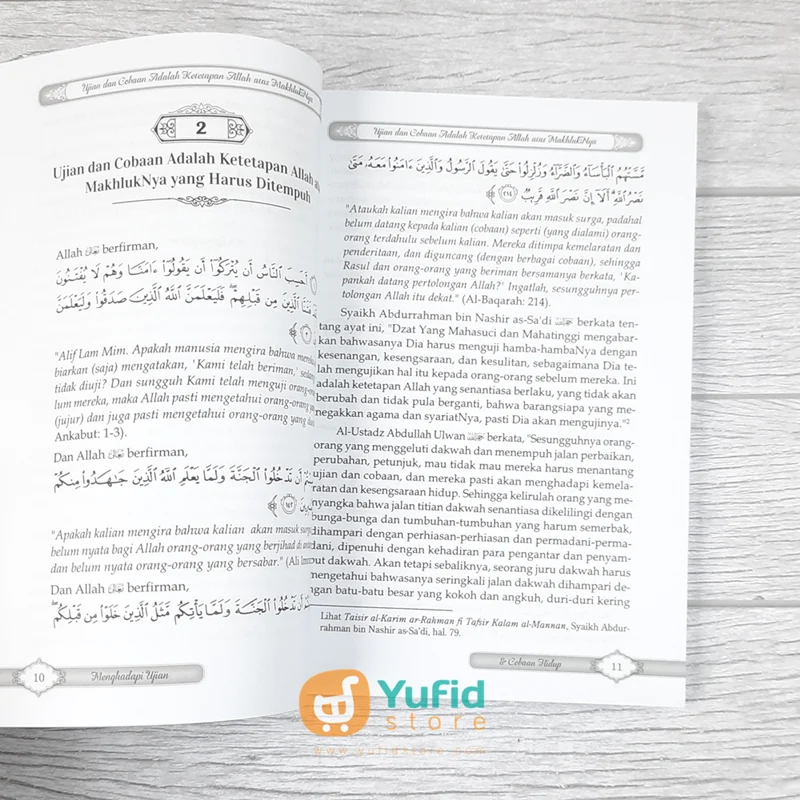 Ujian dan Cobaan Adalah Ketetapan Allah atas MakhlukNya
2
Ujian dan Cobaan Adalah Ketetapan Allah
MakhlukNya yang Harus Ditempuh
Allah تعالى berfirman,
أَحَسِبَ النَّاسُ أَن يُتْرَكُوا أَن يَقُولُوا ءَامَنَّا وَهُمْ لَا يُفْتَنُونَ
فَتَنَّا الَّذِينَ مِن قَبْلِهِمْ فَلَيَعْلَمَنَّ اللَّهُ الَّذِينَ صَدَقُوا وَلَيَعْلَمَنَّ
﴿٣﴾
"Alif Lam Mim. Apakah manusia mengira bahwa mereka
biarkan (saja) mengatakan, 'Kami telah beriman,'
tidak diuji? Dan sungguh Kami telah menguji orang-
lum mereka, maka Allah pasti mengetahui orang-orang
(jujur) dan juga pasti mengetahui orang-orang yang
Ankabut: 1-3).
Dan Allah تعالى berfirman,
أَن تَدْخُلُوا الْجَنَّةَ وَلَمَّا يَعْلَمِ اللَّهُ الَّذِينَ جَاهَدُوا مِنكُمْ
﴿١٤٢﴾
"Apakah kalian mengira bahwa kalian akan masuk
belum nyata bagi Allah orang-orang yang berjihad di
dan belum nyata orang-orang yang bersabar." (Ali
Dan Allah تعالى berfirman,
أَن تَدْخُلُوا الْجَنَّةَ وَلَمَّا يَأْتِكُم مَّثَلُ الَّذِينَ خَلَوْا مِن قَبْلِكُم
10 Menghadapi Ujian
Ujian dan Cobaan Adalah Ketetapan Allah atas MakhlukNya
مَّسَّتْهُمُ الْبَأْسَاءُ وَالضَّرَّاءُ وَزُلْزِلُوا حَتَّى يَقُولَ الرَّسُولُ وَالَّذِينَ ءَامَنُوا مَعَهُ مَتَى
نَصْرُ اللَّهِ أَلَا إِنَّ نَصْرَ اللَّهِ قَرِيبٌ ﴿٢١٤﴾
"Ataukah kalian mengira bahwa kalian akan masuk surga, padahal
belum datang kepada kalian (cobaan) seperti (yang dialami) orang-
orang terdahulu sebelum kalian. Mereka ditimpa kemelaratan dan
penderitaan, dan diguncang (dengan berbagai cobaan), sehingga
Rasul dan orang-orang yang beriman bersamanya berkata, 'Ka-
pankah datang pertolongan Allah?' Ingatlah, sesungguhnya per-
tolongan Allah itu dekat." (Al-Baqarah: 214).
Syaikh Abdurrahman bin Nashir as-Sa'di berkata ten-
tang ayat ini, "Dzat Yang Mahasuci dan Mahatinggi mengabar-
kan bahwasanya Dia harus menguji hamba-hambaNya dengan
kesenangan, kesengsaraan, dan kesulitan, sebagaimana Dia te-
lah mengujikan hal itu kepada orang-orang sebelum mereka. Ini
adalah ketetapan Allah yang senantiasa berlaku, yang tidak akan
berubah dan tidak pula berganti, bahwa barangsiapa yang me-
negakkan agama dan syariatNya, pasti Dia akan mengujinya."²
Al-Ustadz Abdullah Ulwan berkata, "Sesungguhnya orang-
orang yang menggeluti dakwah dan menempuh jalan perbaikan,
perubahan, petunjuk, mau tidak mau mereka harus menantang
ujian dan cobaan, dan mereka pasti akan menghadapi kemela-
ratan dan kesengsaraan hidup. Sehingga kelirulah orang yang me-
nyangka bahwa jalan titian dakwah senantiasa dikelilingi dengan
bunga-bunga dan tumbuhan-tumbuhan yang harum semerbak,
dihampari dengan perhiasan-perhiasan dan permadani-perma-
dani, dipenuhi dengan kehadiran para pengantar dan penyam-
but dakwah. Akan tetapi sebaliknya, seorang juru dakwah harus
mengetahui bahwasanya seringkali jalan dakwah dihampari de-
ngan batu-batu besar yang kokoh dan angkuh, duri-duri kering
Lihat Taisir al-Karim ar-Rahman fi Tafsir Kalam al-Mannan, Syaikh Abdur-
rahman bin Nashir as-Sa'di, hal. 79.
& Cobaan Hidup 11
Yufid
store
www.yufidstore.com